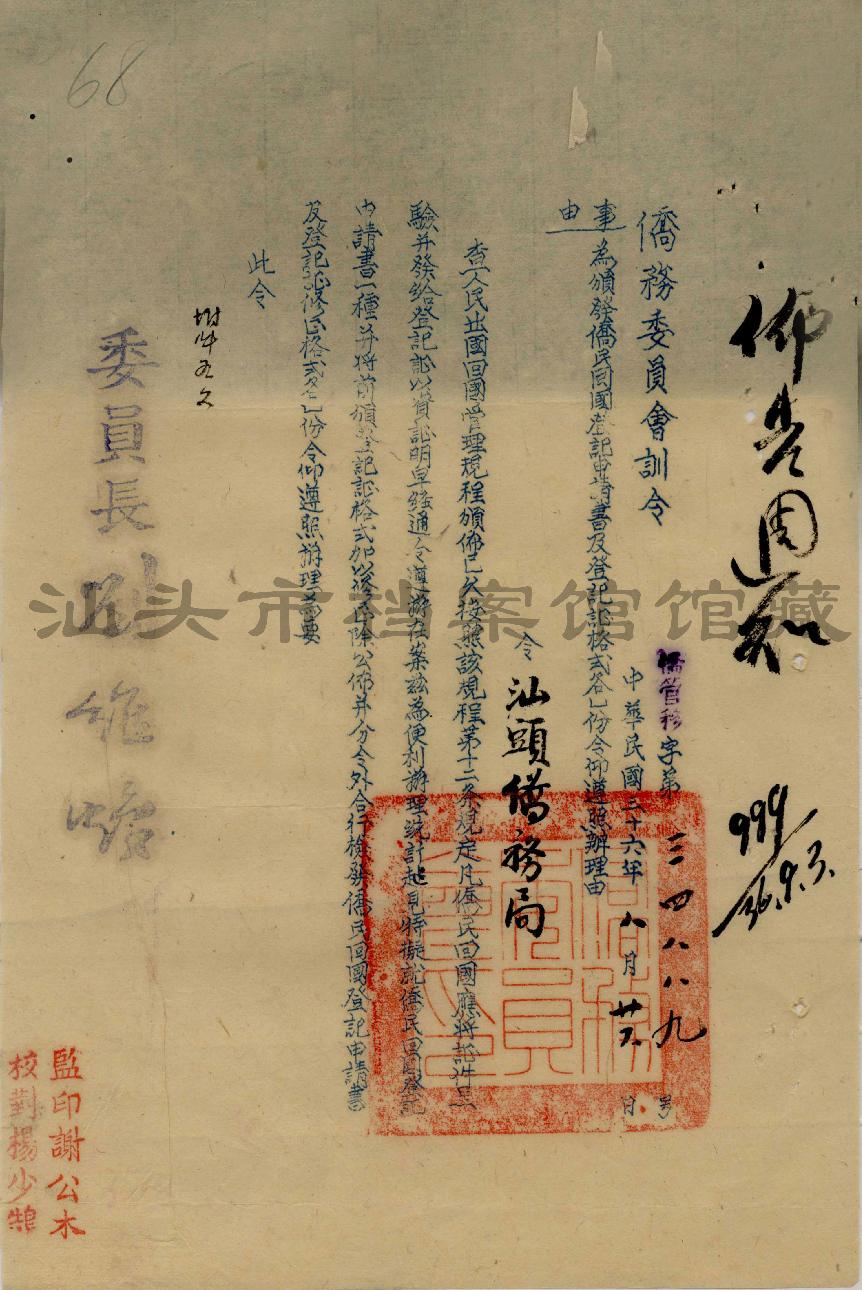 68
佈告週知
999
36.9.3.
僑務委員會訓令
僑管移字第三四八八九號
中華民國三十六年八月廿六日
事由
為頒發僑民回國登記申請書及登記証格式各乙份令仰遵照辦理由
令汕頭僑務局
查人民出國回國管理規程頒佈已久按照該規程第十二條規定凡僑民回國應將証件呈
驗并發給登記証以資証明早經通令遵辦在案茲為便利辦理統計起見特擬就僑民回國登記
申請書一種并將前頒登記証格式加以修正除公佈并分令外合行檢發僑民回國登記申請書
及登記証修正格式各乙份令仰遵照辦理為要
此令
附件
委員長
監印謝公木
校對楊少
汕头市档案馆馆藏